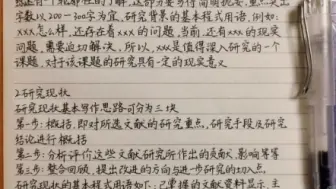 字数以200-300字为宜、研究背景的基本程式用语,例如:
xxx怎么样,还存在着xxx的问题,当前,还有xxx的现实
问题,需要迫切解决,所以,xxx是值得深入研究的一个
课题,对于该课题的研究具有一定的现实意义
2.研究现状
研究现状基本写作思路可分为三块
第一步:概括,即对所选文献的研究重点,研究手段及研究
结论进行概括
第二步:分析评价这些文献研究所作出的贡献、影响等等
第三步:整合回顾,提出改进的方向与进一步研究的切入点,
研究现状的基本程式用语如下:已掌握的文献资料显示,主